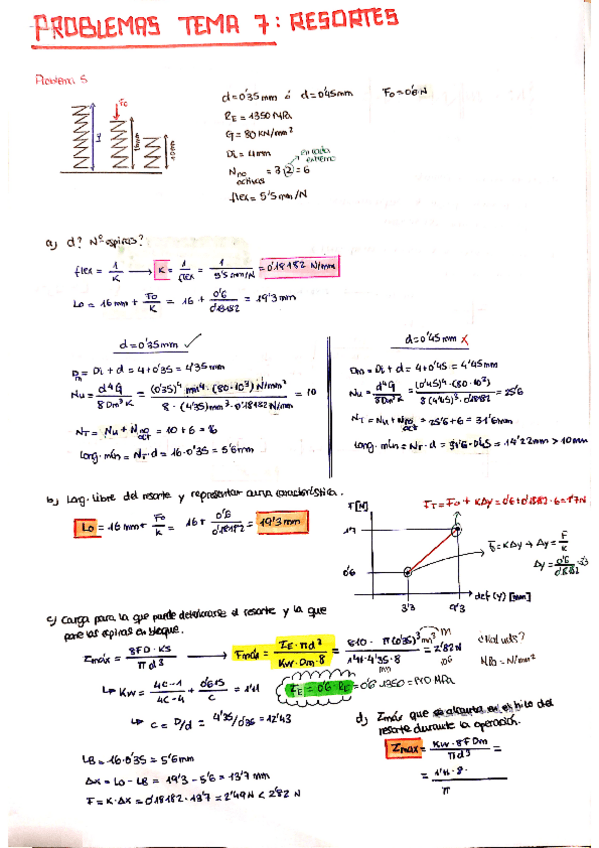 PROBLEMAS TEMA 7: RESORTES
Problema 5
Fo
Lo
16mm
10mm
d=0'35mm ó d=0'45mm Fo=0'6N
RE = 1350 MPa
G = 80 KN/mm²
Di = 4mm
en cada extremo
N no activas = 3·2 = 6
flex = 5'5 mm/N
a) d? Nº espiras?
flex = 1/K → K = 1/flex = 1/5'5 mm/N = 0'18182 N/mm
Lo = 16mm + Fo/K = 16 + 0'6/0'18182 = 19'3 mm
d=0'35mm ✓
Dm = Di + d = 4+0'35 = 4'35mm
Nu = d⁴G/8Dm³K = (0'35)⁴ mm⁴·(80·10³) N/mm²/8·(4'35)mm³·0'18182 N/mm = 10
NT = Nu + N no act = 10 + 6 = 16
Long. mín = NT·d = 16·0'35 = 5'6mm
d=0'45mm ✗
Dm = Di + d = 4+0'45 = 4'45mm
Nu = d⁴G/8Dm³K = (0'45)⁴·(80·10³)/8(4'45)³·0'18182 = 25'6
NT = Nu + N no act = 25'6+6 = 31'6mm
Long. mín = NT·d = 31'6·0'45 = 14'22mm > 10mm
b) Long. libre del resorte y representar curva característica.
Lo = 16mm + Fo/K = 16 + 0'6/0'18182 = 19'3mm
F[N]
FT = Fo + KΔy = 0'6+0'1882·6 = 1'7N
1'7
0'6
3'3
9'3
def (y) [mm]
F = KΔy → Δy = F/K
Δy = 0'6/0'1882 = 3'3
c) Carga para la que puede deteriorarse el resorte y la que
pone las espiras en bloque.
Zmáx = 8FD·KS/πd³ → Fmáx = ZE·πd³/Kw·Dm·8 = 810·π(0'35)³mm³/1'11·4'35·8 = 2'82N
MPa = N/mm²
Kw = 4C-1/4C-4 + 0'615/C = 1'11
ZE = 0'6·RE = 0'6·1350 = 810 MPa
C = D/d = 4'35/0'35 = 12'43
LB = 16·0'35 = 5'6mm
Δx = Lo - LB = 19'3 - 5'6 = 13'7 mm
F = K·Δx = 0'18182·13'7 = 2'49N < 2'82N
d) Zmáx que se alcanza en el hilo del
resorte durante la operación.
Zmax = Kw·8FDm/πd³ =
= 1'11·8·/π